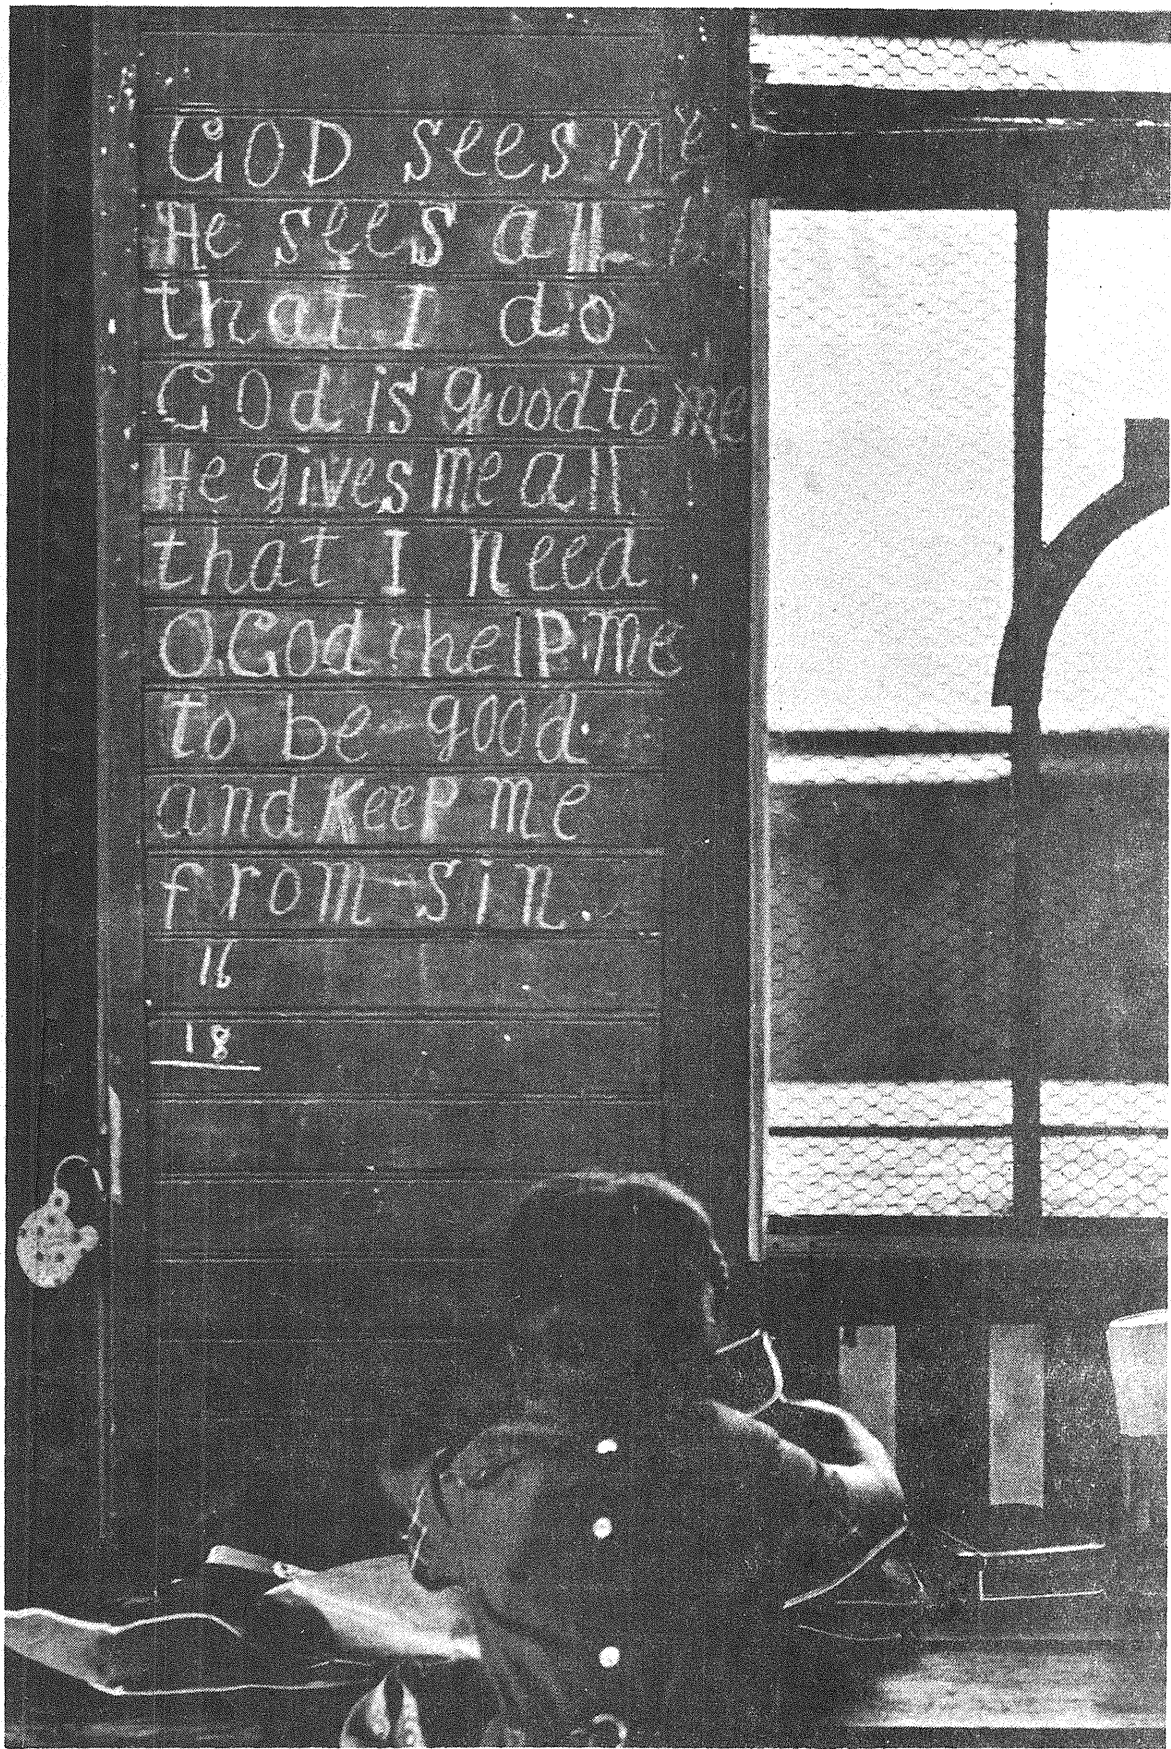 GOD sees me
He sees all
that I do
God is good to me
He gives me all
that I need
O God help me
to be good.
and keep me
from sin.
16
18